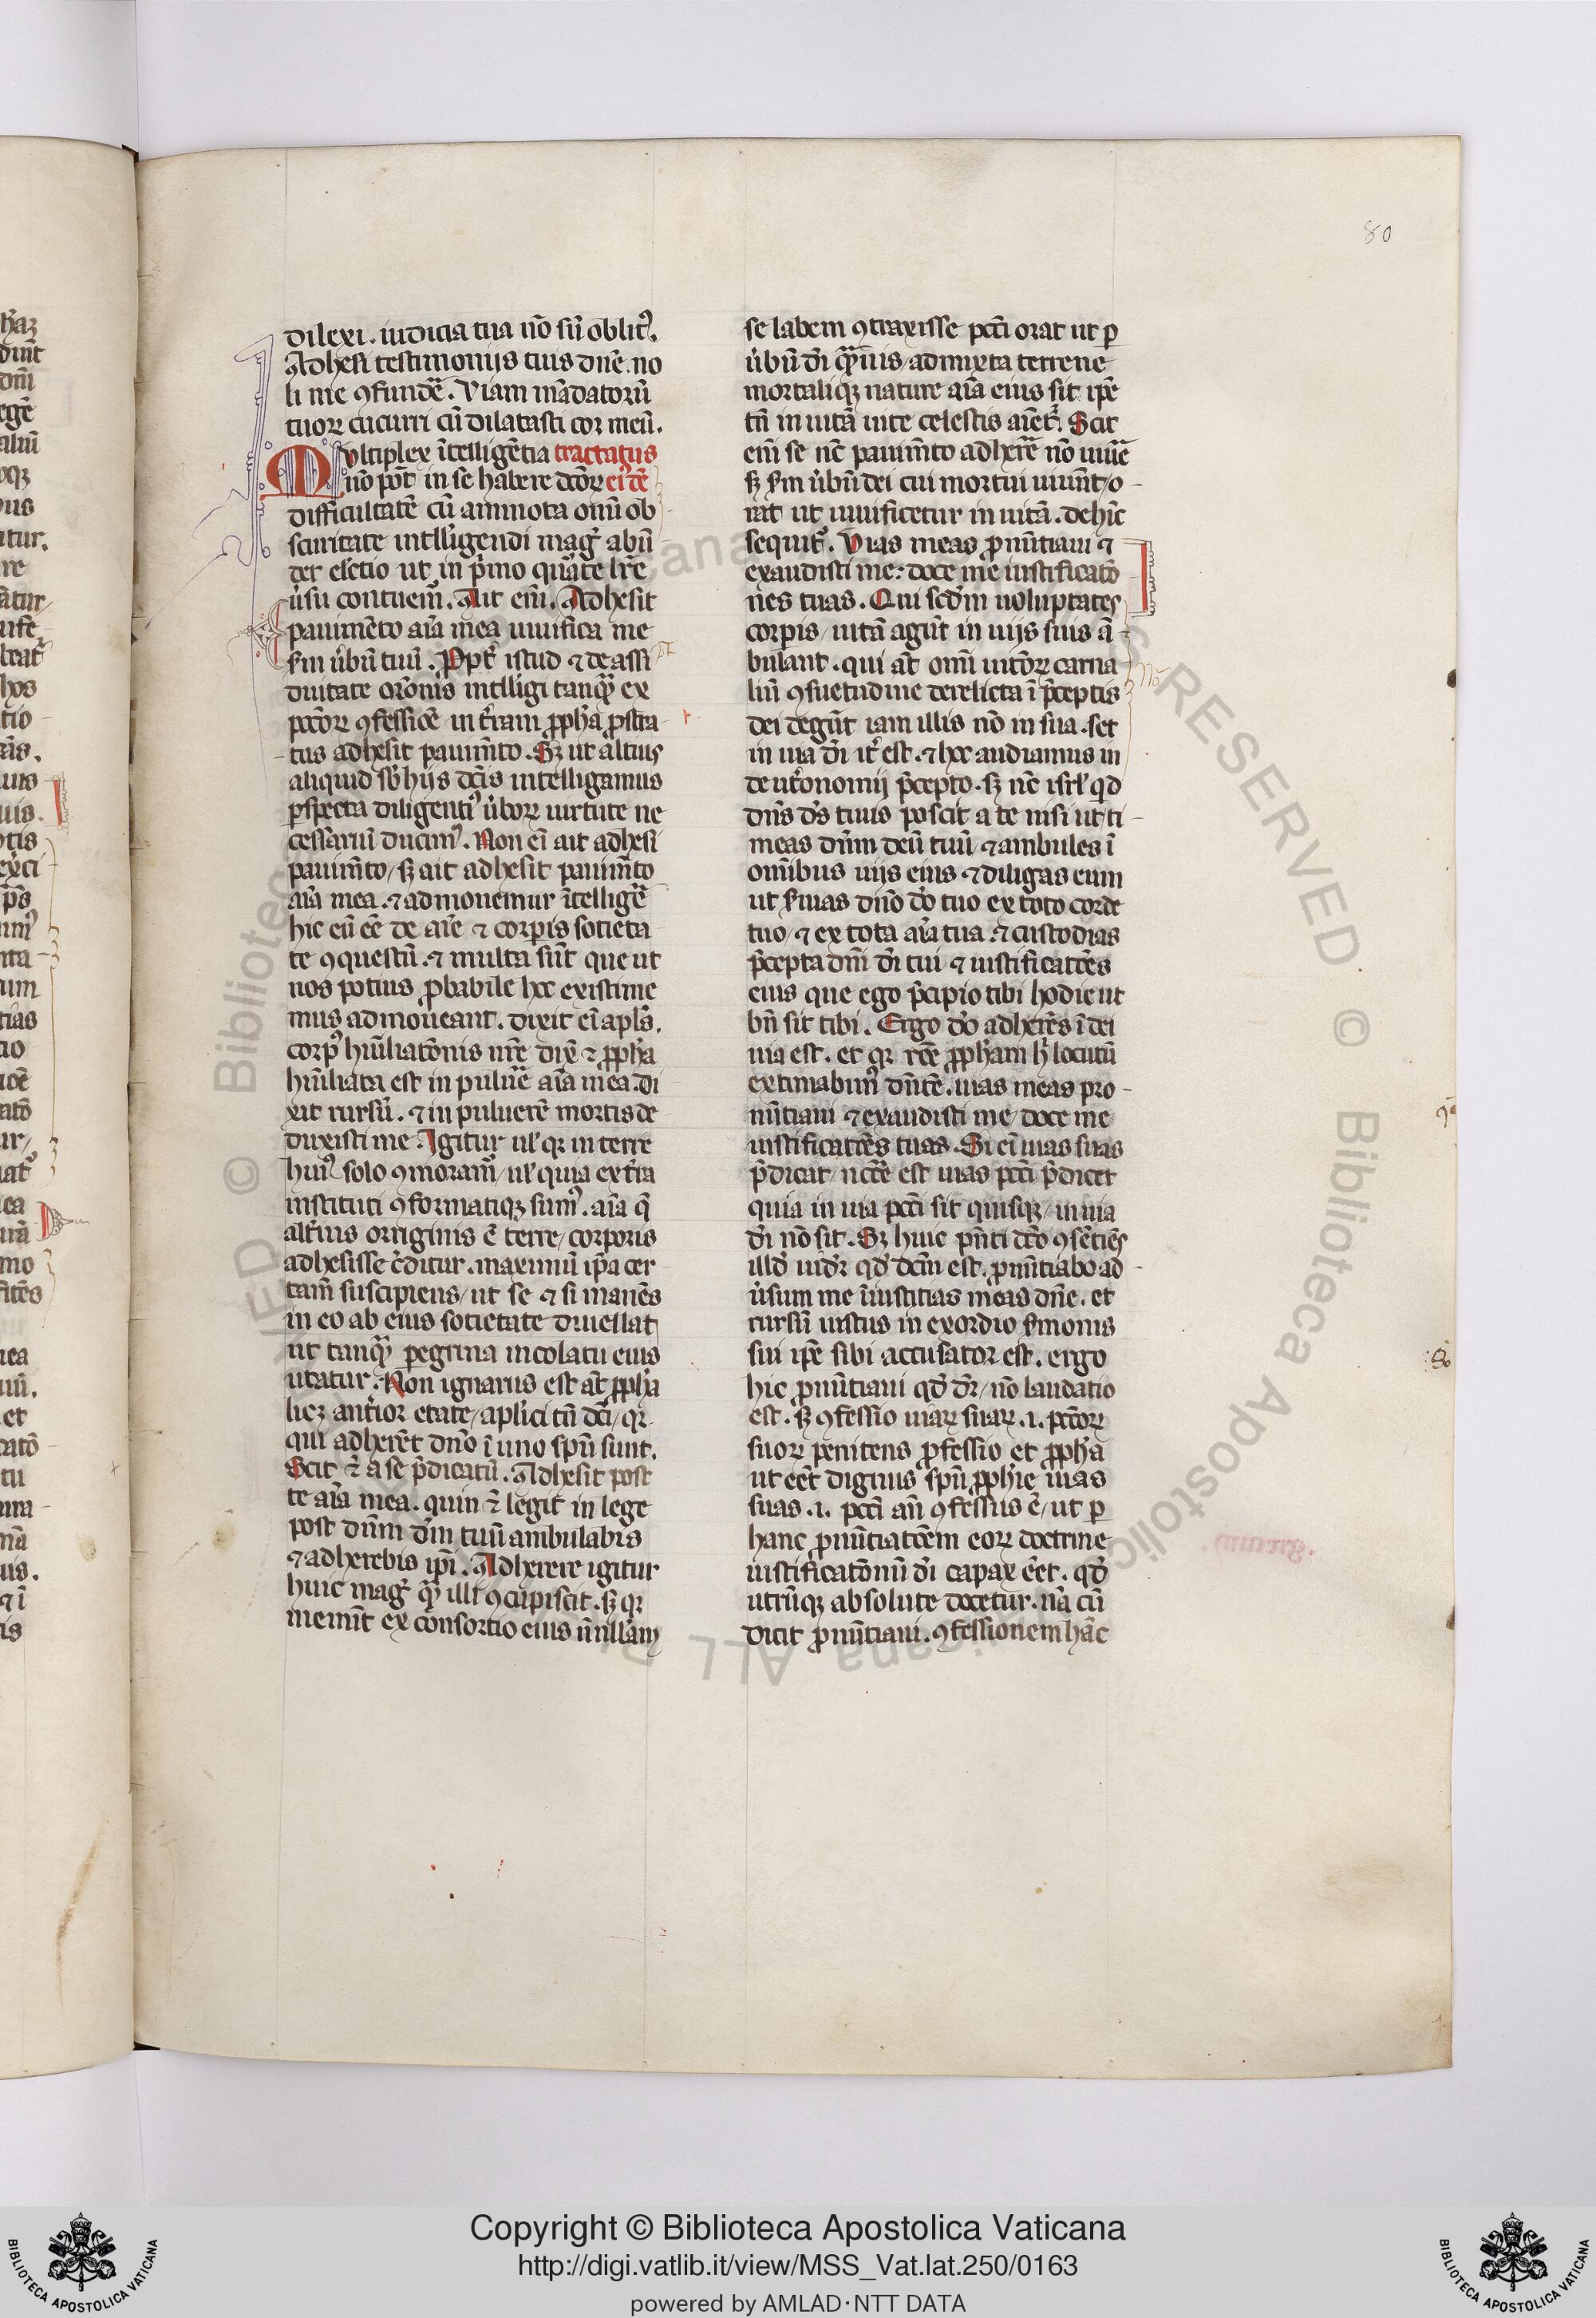 80
dilexi. iudicia tua nō sū oblit᷒.
Adhesi testimonijs tuis dn̄e. no
li me ꝯfundē. Viam mādatorū
tuoꝝ cucurri cū dilatasti cor meū.
Multiplex ītelligētia tractatus
nō pōt in se habere dc̄oꝝ ei᷒dē
difficultatē cū ammota om̄i ob
scuritate intll̓igendi mag̓ abū
der elc̄tio ut in p̓mo quarte lr̄e
ūsu contuem̄. Ait eni̅. Adhesit
pauimēto aīa mea uiuifica me
scd̄m ūbū tuū. Ppt̓ istud ⁊ de assi
duitate or̄onis intll̓igi tanqᷓ ex
pctōꝝ ꝯfessiōe in tr̄am ꝓph̄a ꝓstra
tus adhesit pauim̄to. Sꝫ ut altius
aliquid sb̓ hijs dc̄is intelligamus
ꝑspecta diligenti᷒ ūboꝝ uirtute ne
cessariū ducim᷒. Non eī ait adhesi
pauim̄to, sꝫ ait adhesit pauim̄to
aīa mea. ⁊ admonemur ītelligē
hic eū eē de aīe ⁊ corpis societa
te ꝯquestū. ⁊ multa sūt que ut
nos potius ꝓbabile hoc existime
mus admoueant. dixit eī apl̄s.
corp᷒ hūiliatōnis nr̄e dix̄ ⁊ ꝓph̄a
hūiliata est in puluē aīa mea. di
xit rursū. ⁊ in puluerē mortis de
duxisti me. Igitur ul̓ qꝛ in terre
hui᷒ solo ꝯmoram̄, ul̓ quia ex tr̄a
instituti ꝯformatiqꝫ sum᷒. aīa q̄
alt̓ius originis ē terre, corporis
adhesisse c̓ditur. maximū ip̄a cer
tam̄ suscipiens, ut se ⁊ si manēs
in eo ab eius societate diuellat
ut tanqᷓ ꝑegrina incolatu eius
utatur. Non ignarus est āt ꝓph̄a
licꝫ ant̓ior etate, apl̓ici tū dc̄i, qꝛ
qui adherēt dn̄o ī uno spū sunt.
Scit ⁊̄ a se p̓dicatū. Adhesit post
te aīa mea. quin ⁊̄ legit in lege
post dn̄m dm̄ tuū ambulabis
⁊ adherebis ip̄i. Adherere igitur
huic mag̓ qᷓ illi ꝯcupiscit. sꝫ qꝛ
memīt ex consortio eius ū nullam
se labem ꝯtraxisse pcc̄i orat ut ꝑ
ūbū dī qᷓuis, admixta terrene
mortaliqꝫ nature aīa eius sit ip̄e
tn̄ in uitā uite celestis aīet᷒. Scit
eni̅ se nc̄ pauim̄to adherē nō uiuē
sꝫ scd̄m ūbū dei cui mortui uiuūt, o
rat ut uiuificetur in uitā. dehīc
sequit᷒. Vias meas ꝓnūtiaui ⁊
exaudisti me: doce me iustificatō
nes tuas. Qui scd̄m uoluptates
corpis, uitā agūt in uijs suis ā
bulant. qui āt om̄i uitōꝝ carna
liū ꝯsuetudine derelicta ī p̄ceptis
dei degūt iam illis nō in sua. set
in uia dī it̓ est. ⁊ hoc audiamus in
deut̓onomij p̄cepto. sꝫ nc̄ isrl̓ qd
dn̄s ds̄ tuus poscit a te nisi ut ti
meas dn̄m deū tuū, ⁊ ambules ī
om̄ibus uijs eius ⁊ diligas eum
ut s̄uias dn̄o dō tuo ex toto corde
tuo, ⁊ ex tota aīa tua. ⁊ custodias
p̄cepta dn̄i dī tui ⁊ iustificatōes
eius que ego p̄cipio tibi hodie ut
bn̄ sit tibi. Ergo dō adherēs ī dei
uia est. et qꝛ rc̄e ꝓph̄am h̓ locutū
extimabim᷒ dn̄tē. uias meas pro
nūtiaui ⁊ exaudisti me, doce me
iustificatōes tuas. Si eī uias suas
p̄dicat, ncc̄e est uias pcc̄i p̄dicet
quia in uia pcc̄i sit quisqꝫ, in uia
dī nō sit. Sꝫ huic pn̄ti dc̄o ꝯsētiēs
illd̓ uid̓r qd̓ dc̄m est. ꝓnūtiabo ad
ūsum me iniustitias meas dn̄e. et
rursū iustus in exordio s̄monis
sui ip̄e sibi accusator est. ergo
hic ꝓnūtiaui qd̓ dr̄, nō laudatio
est. sꝫ ꝯfessio uiaꝝ suaꝝ .i. pctōꝝ
suoꝝ penitens ꝓfessio et ꝓph̄a
ut eēt dignus spū ꝓph̄ie uias
suas .i. pcc̄i an̄ ꝯfessus ē, ut ꝑ
hanc ꝓnūtiatōem eoꝝ doctrine
iustificatōnū dī capax eēt. qd̓
utrūqꝫ absolute docetur. nā cū
dicit ꝓnūtiaui. ꝯfessionem hāc
Copyright © Biblioteca Apostolica Vaticana
http://digi.vatlib.it/view/MSS_Vat.lat.250/0163
powered by AMLAD·NTT DATA
BIBLIOTECA APOSTOLICA VATICANA
BIBLIOTECA APOSTOLICA VATICANA